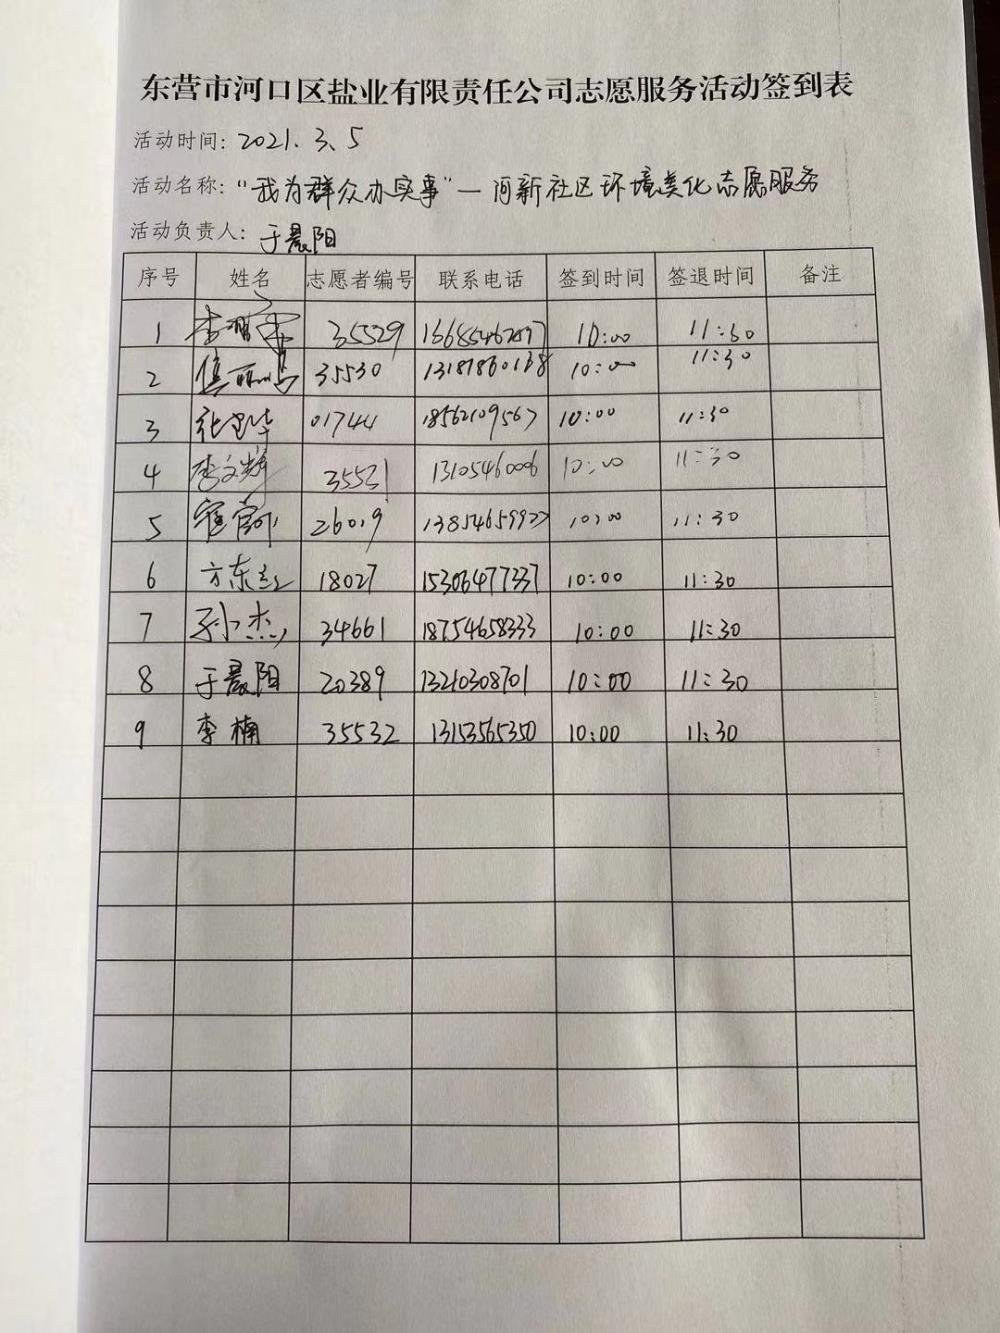 东营市河口区盐业有限责任公司志愿服务活动签到表
活动时间: 2021.3.5
活动名称: "我为群众办实事"—河新社区环境美化志愿服务
活动负责人: 于晨阳
序号 姓名 志愿者编号 联系电话 签到时间 签退时间 备注
1 35529 10:00 11:30
2 35530 10:00 11:30
3 01744 18562109567 10:00 11:30
4 李文辉 35531 13105460006 10:00 11:30
5 26019 13854659927 10:00 11:30
6 方东 18027 15306477337 10:00 11:30
7 孙杰 34661 18754658333 10:00 11:30
8 于晨阳 20389 13210308701 10:00 11:30
9 李楠 35532 13153565350 10:00 11:30